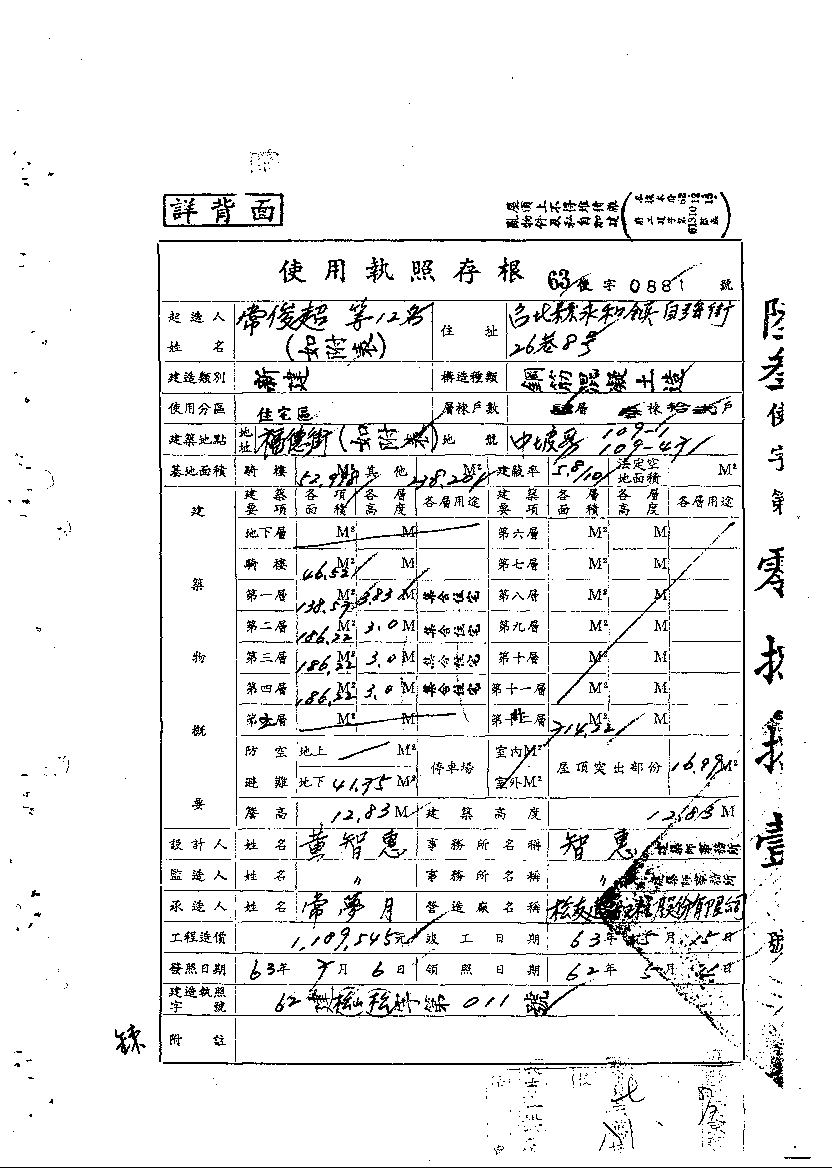 詳背面
屋頂上不得堆積雜
亂物件及私自加建
使用執照存根 63 使字 0881 號
起造人姓名 常俊超 等12名 (如附表) 住址 台北縣永和鎮自強街 26巷8号
建造類別 新建 構造種類 鋼筋混凝土造
使用分區 住宅區 層棟戶數 層 棟 戶
建築地點 地址 福德街(如附表) 地號 中坡段 109-1 109-471
基地面積 騎樓 52.998 M² 其他 M² 建蔽率 5.8/10 法定空地面積 M²
建築物概要
建築要項 各項面積 各層高度 各層用途 建築要項 各層面積 各層高度 各層用途
地下層 M² M 第六層 M² M
騎樓 46.52 M² M 第七層 M² M
第一層 138.57 M² 3.83 M 集合住宅 第八層 M² M
第二層 186.22 M² 3.0 M 集合住宅 第九層 M² M
第三層 186.22 M² 3.0 M 集合住宅 第十層 M² M
第四層 186.22 M² 3.0 M 集合住宅 第十一層 M² M
第五層 M² M 第十二層 714.22
防空避難 地上 M² 停車場 室內M² 屋頂突出部份 16.99 M²
地下 41.75 M² 室外M²
簷高 12.83 M 建築高度 12.83 M
設計人 姓名 黃智惠 事務所名稱 智惠 建築師事務所
監造人 姓名 〃 事務所名稱 〃 建築師事務所
承造人 姓名 常夢月 營造廠名稱 松友 工程股份有限公司
工程造價 1,189,545元 竣工日期 63年5月15日
發照日期 63年7月6日 領照日期 62年5月 日
建造執照字號 62 建 松山 松 字第 011 號
附註
陸叁使字第零捌捌壹號